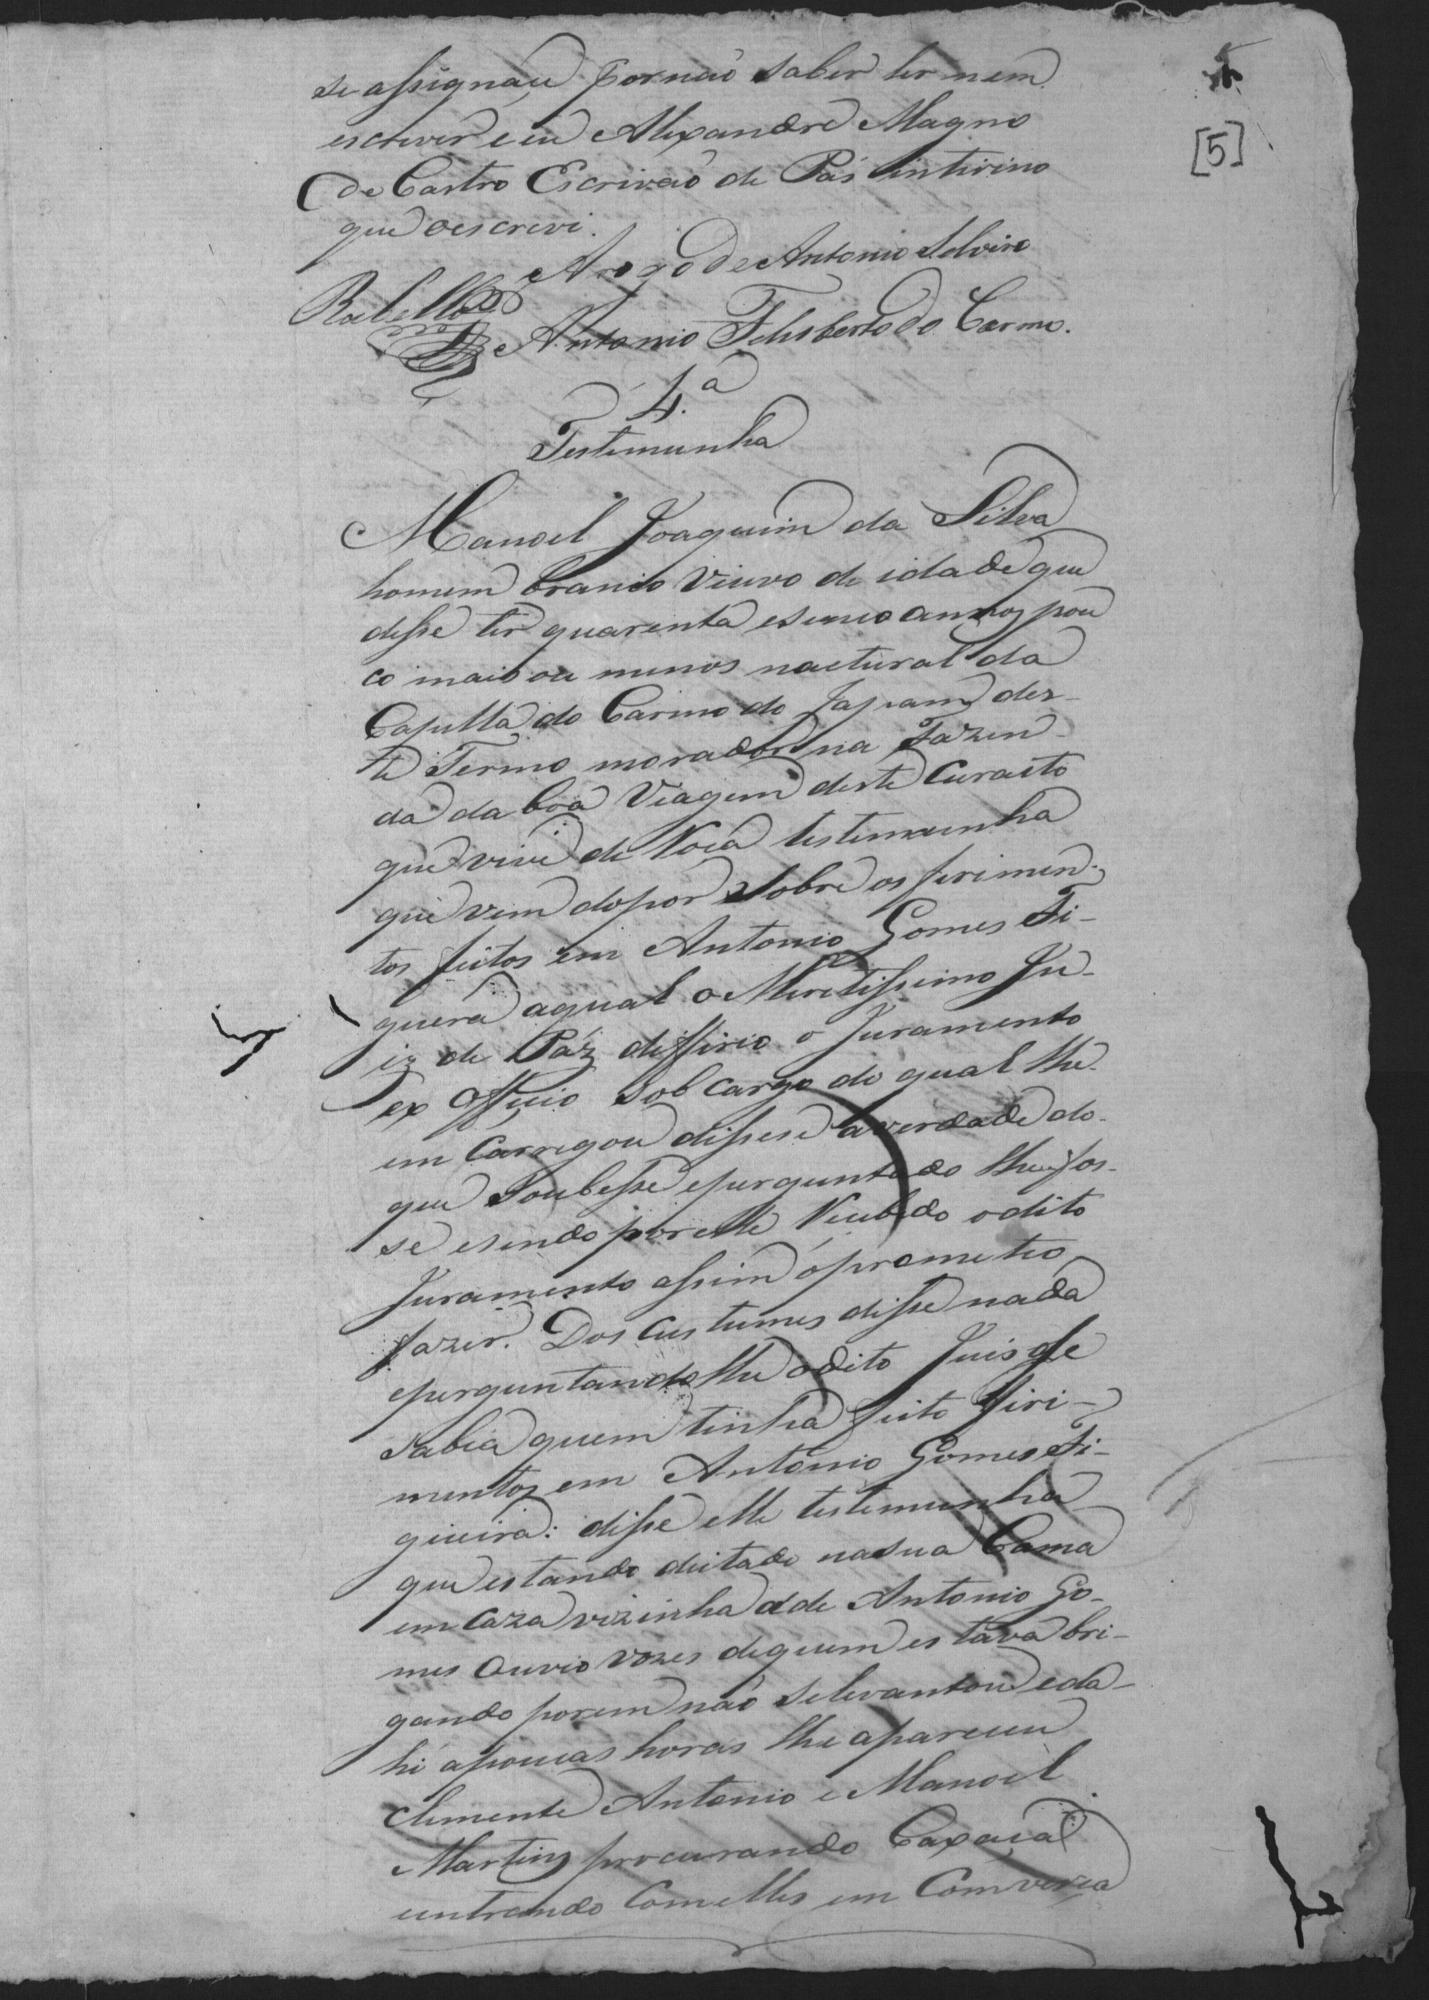 5
[5]
se assignáu por naõ saber ler nem
escrever e eu Alexandre Magno
de Castro Escrivaõ de Pas interino
que o escrevi.
Arogo de Antonio Selvino
Rabello
Antonio Felisberto do Carmo.
4.ª
Testemunha
Manoel Joaquim da Silva
homem branco Viuvo de idade que
disse ter quarenta e sinco annos pou
co mais ou menos nactural da
Capella do Carmo do Japam des-
te Termo morador na Fazen-
da da boa Viagem deste Curacto
que vive de Roça testemunha
que vem depor sobre os ferimen-
tos feitos em Antonio Gomes Fi-
guera aqual o Meretissimo Ju-
iz de Paz defferio o Juramento
ex Officio sob cargo do qual lhe
em carregou dissese averdade do
que Soubesse e perguntado lhe fos-
se e sendo por elle Recebido o dito
Juramento assim o prometeo
fazer. Dos Custumes disse nada
e perguntando lhe o dito Juis se
sabia quem tinha feito firi-
mentos em Antonio Gomes Fi-
gueira: disse elle testemunha
que estando deitado na sua Cama
em Caza vizinha a de Antonio Go-
mes Ouvio vozes de quem estava bri-
gando porem naõ se levantou e da-
hi a poucas horas lhe apareceu
Clemente Antonio e Manoel
Martins procurando Caxaça
e entrando Com elles em Comverça